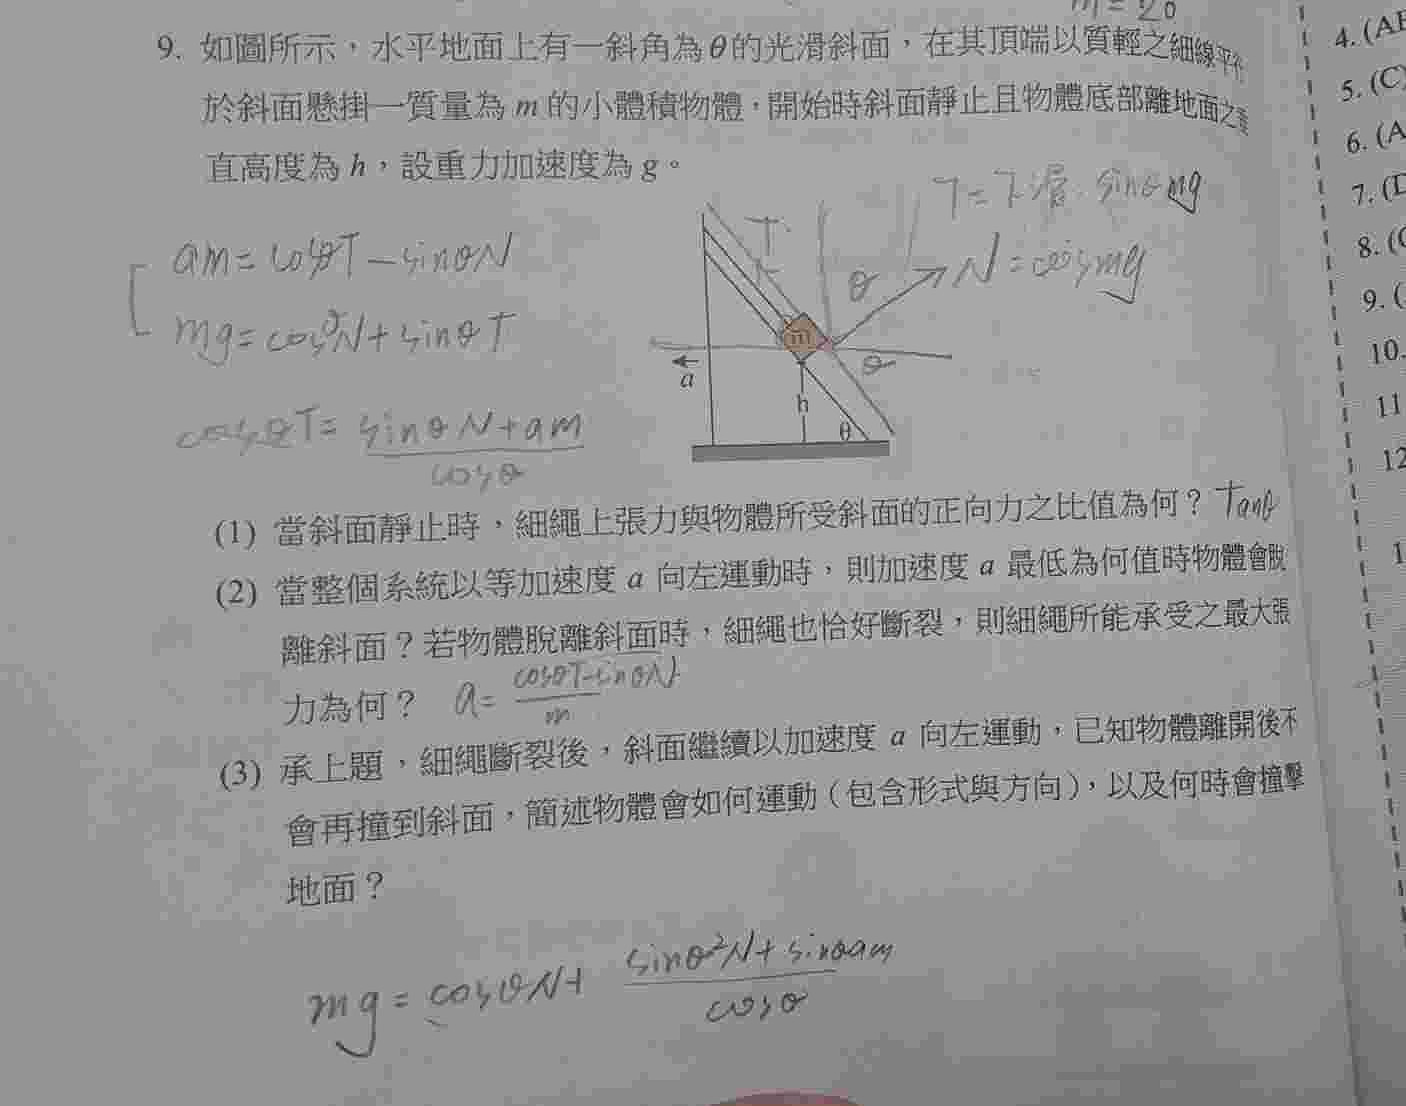 m=20
9. 如圖所示，水平地面上有一斜角為θ的光滑斜面，在其頂端以質輕之細線平行
於斜面懸掛一質量為 m 的小體積物體，開始時斜面靜止且物體底部離地面之垂
直高度為 h，設重力加速度為 g。
T=下滑. sinθ mg
am=cosθT-sinθN
T
θ
N=cosmg
mg=cosθN+sinθT
m
θ
a
h
θ
cosθT= sinθN+am
cosθ
(1) 當斜面靜止時，細繩上張力與物體所受斜面的正向力之比值為何？ Tanθ
(2) 當整個系統以等加速度 a 向左運動時，則加速度 a 最低為何值時物體會脫
離斜面？若物體脫離斜面時，細繩也恰好斷裂，則細繩所能承受之最大張
力為何？ a= cosθT-sinθN
m
(3) 承上題，細繩斷裂後，斜面繼續以加速度 a 向左運動，已知物體離開後不
會再撞到斜面，簡述物體會如何運動（包含形式與方向），以及何時會撞擊
地面？
mg=cosθN+ sinθ²N+sinθam
cosθ
4. (AB
5. (C)
6. (A
7. (D
8. (C
9. (
10.
11
12
1